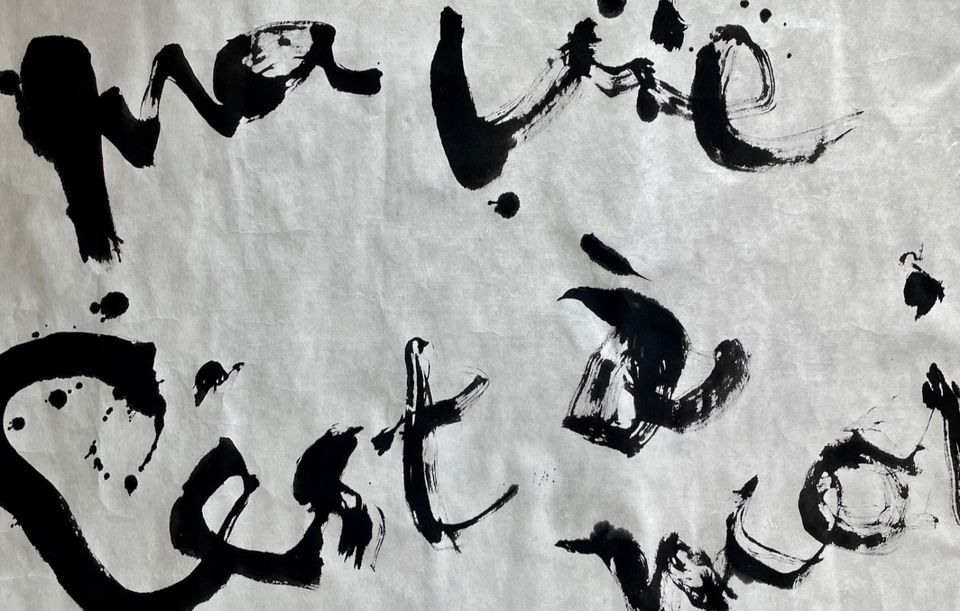 ma vie
c'est à
moi